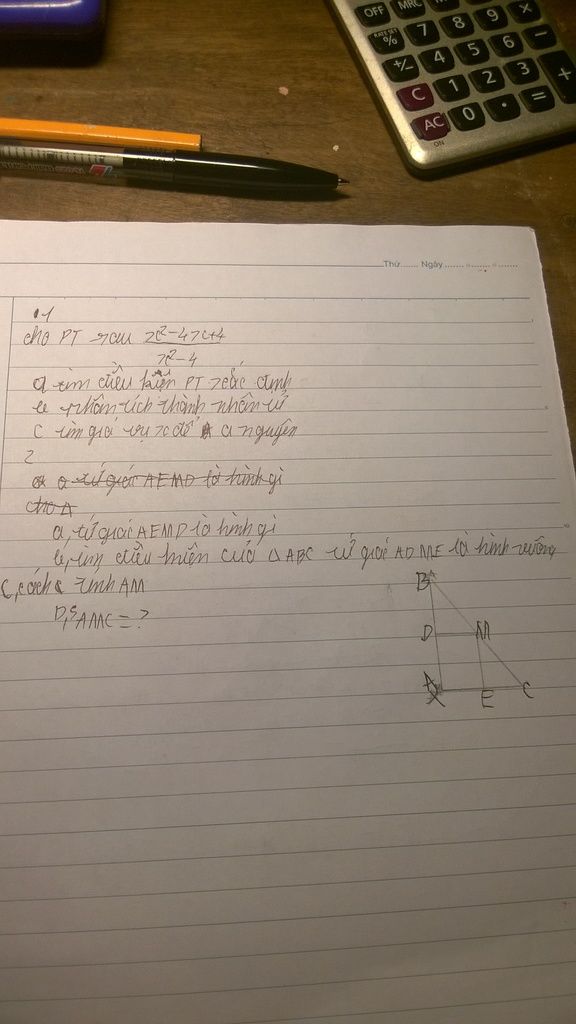 OFF MRC
7 8 9 ×
RATE SET
% 4 5 6 −
+/−
C 1 2 3 +
AC 0 • =
ON
Thứ ...... Ngày
1
cho PT sau x²-4x+4
x²-4
a tìm điều kiện PT xác định
b phân tích thành nhân tử
c tìm giá trị x để A nguyên
2
a tứ giác AEMD là hình gì
cho A
a, tứ giác AEMD là hình gì
b, tìm điều kiện của △ABC tứ giác ADME là hình vuông
C, cách tính AM
D, SAMC = ?
B
D M
A E C